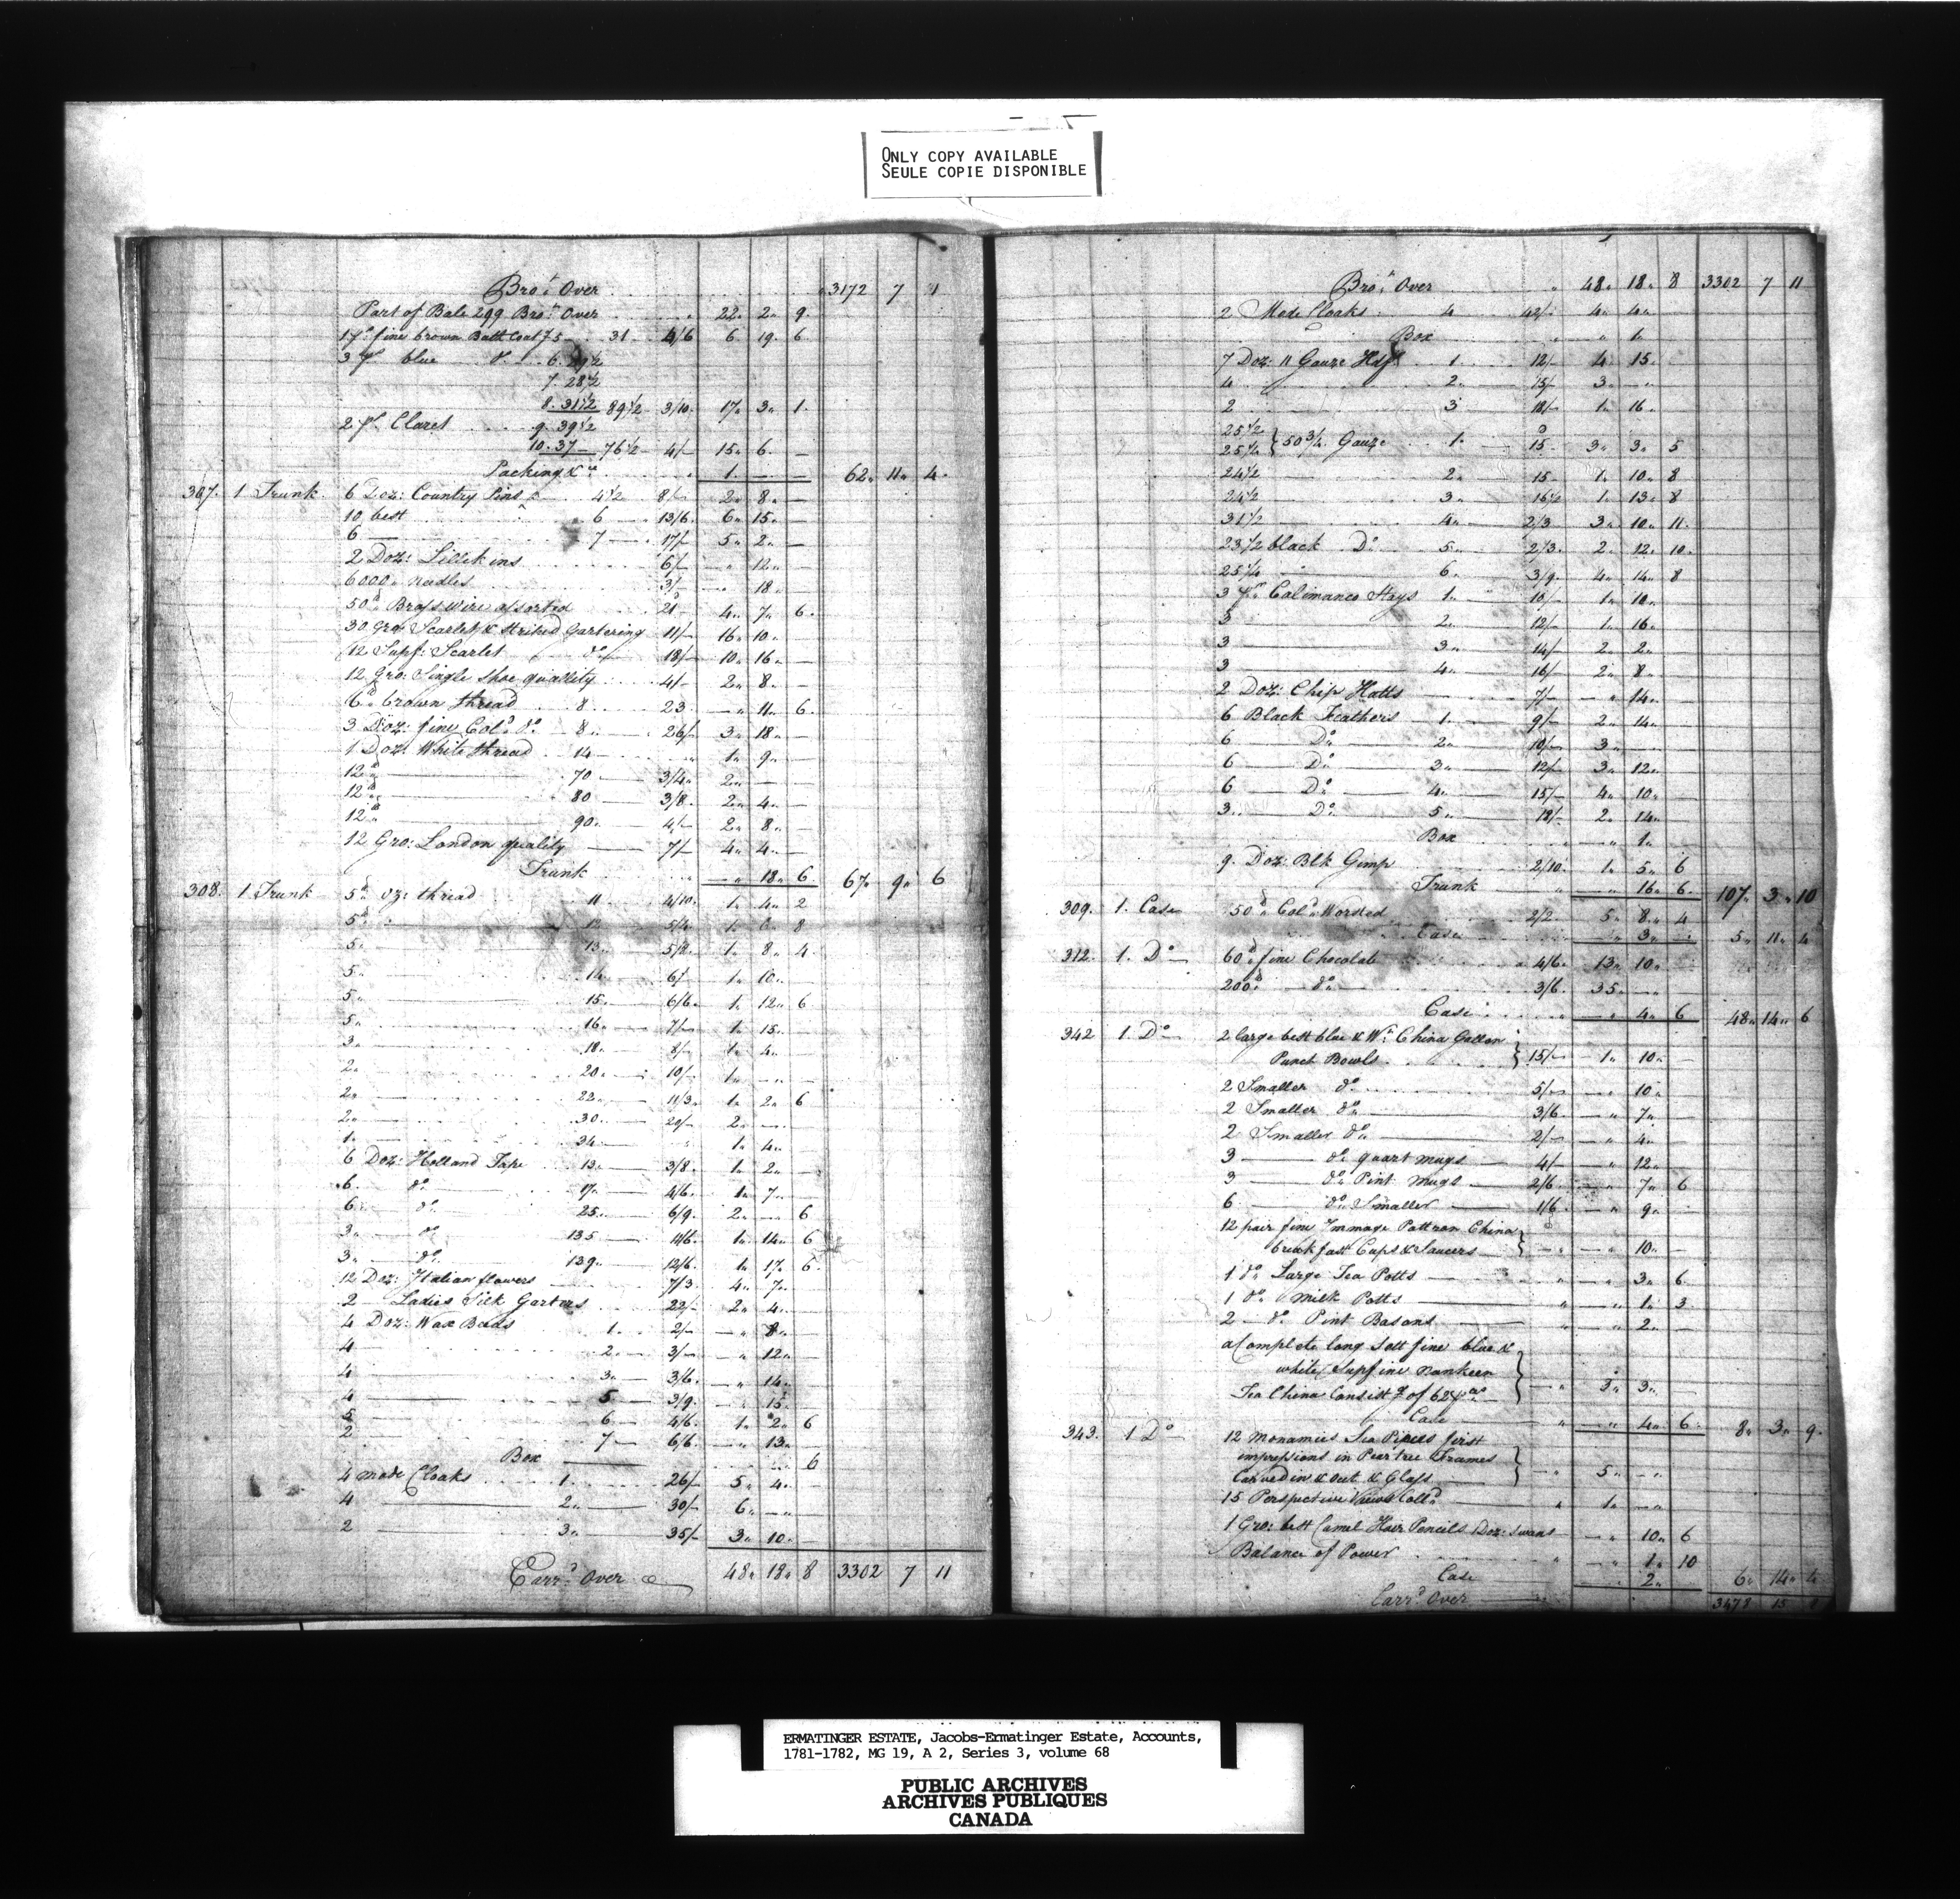 ONLY COPY AVAILABLE
SEULE COPIE DISPONIBLE
Bro.t Over 3172 7 1
Part of Bale 299 Bro.t Over 22 2 9
1 ps fine brown Bath Coat 75 31 4/6 6 19 6
3 ps blue do 6. 29½
7. 28½
8. 31½ 89½ 3/10 17 3 1
2 ps Claret 9. 39½
10. 37 76½ 4/ 15 6 —
Packing &ca 1 — — 62 11 4
307. 1 Trunk 6 Doz: Country Pins 4½ 8/ 2 8 —
10 best 6 13/6 6 15 —
6 — 7 17/ 5 2 —
2 Doz: Lillikins 6/ — 12 —
6000 needles 3/ — 18 —
50 lb Brass wire assorted 21 4 7 6
30 Gro: Scarlet & Striked Gartering 11/ 16 10 —
12 Supf: Scarlet do 18/ 10 16 —
12 Gro: Single Shoe quallity 4/ 2 8 —
6 lb brown thread 8 23 — 11 6
3 Doz: fine Col.d do 8 26/ 3 18 —
1 Doz: White thread 14 1 9 —
12 lb 70 3/4 2 — —
12 lb 80 3/8 2 4 —
12 lb 90 4/ 2 8 —
12 Gro: London quality 7/ 4 4 —
Trunk — 18 6 67 9 6
308. 1 Trunk 5 lb oz: thread 11 4/10 1 4 2
5 12 5/4 1 6 8
5 13 5/8 1 8 4
5 14 6/ 1 10
5 15 6/6 1 12 6
5 16 7/ 1 15
3 18 8/ 1 4
2 20 10/ 1 — —
2 22 11/3 1 2 6
2 30 20/ 2 —
1 34 1 4
6 Doz: Holland Tape 13 3/8 1 2
6 do 17 4/6 1 7
6 do 25 6/9 2 — 6
3 do 135 11/6 1 14 6
3 do 139 12/6 1 17 6
12 Doz: Italian flowers 7/3 4 7
2 Ladies Silk Garters 22/ 2 4
4 Doz: Wax Beads 1 2/ — 8
4 2 3/ — 12
4 3 3/6 — 14
4 5 3/9 — 15
5 6 4/6 1 2 6
2 7 6/6 — 13
Box 6
4 mode Cloaks 1 26/ 5 4
4 2 30/ 6 —
2 3 35/ 3 10
Carr.d Over 48 18 8 3302 7 11
Bro.t Over 48 18 8 3302 7 11
2 Mode Cloaks 4 42/ 4 4
Box 1
7 Doz: 11 Gauze Hdfs 1 12/ 4 15
4 2 15/ 3 —
2 3 18/ 1 16
25½
25¼ } 50¾ Gauze 1 15 3 3 5
24½ 2 15 1 10 8
24½ 3 16½ 1 13 8
31½ 4 2/3 3 10 11
23½ black Do 5 2/3 2 12 10
25¼ 6 3/9 4 14 8
3 ps Calimanco Stays 1 10/ 1 10
3 2 12/ 1 16
3 3 14/ 2 2
3 4 16/ 2 8
2 Doz: Chip Hatts 7/ — 14
6 Black Feathers 1 9/ 2 14
6 Do 2 10/ 3
6 Do 3 12/ 3 12
6 Do 4 15/ 4 10
3 Do 5 18/ 2 14
Box 1
9 Doz: Blk Gimp 2/10 1 5 6
Trunk — 16 6 107 3 10
309. 1. Case 50 lb Col.d Worsted 2/2 5 8 4
Case — 3 — 5 11 4
312. 1. Do 60 lb fine Chocolate 4/6 13 10
200 lb do 3/6 35 —
Case — 4 6 48 14 6
342 1. Do 2 large best blue & Wt. China Gallon
Punch Bowls } 15/ 1 10
2 Smaller do 5/ — 10
2 Smaller do 3/6 — 7
2 Smaller do 2/ — 4
3 do quart mugs 4/ — 12
3 do Pint mugs 2/6 — 7 6
6 do Smaller 1/6 — 9
12 pair fine Immage Pattron China
breakfast Cups & Saucers } — 10
1 do Large Tea Potts — 3 6
1 do Milk Potts — 1 3
2 do Pint Basons — 2
a Complete long Sett fine blue &
white Supfine nankeen
Tea China Consist.g of 62 } 3 3
Case — 4 6 8 3 9
343. 1 Do 12 Monamies Sea Pieces first
impressions in Pear tree Frames
Carved in & out & Glass } 5 —
15 Perspective Views Coll.d 1 —
1 Gro: best Camel Hair Pencils Doz: Swans — 10 6
Balance of Power — 1 10
Case 2 6 14 4
Carr.d Over 3478 15
ERMATINGER ESTATE, Jacobs-Ermatinger Estate, Accounts,
1781-1782, MG 19, A 2, Series 3, volume 68
PUBLIC ARCHIVES
ARCHIVES PUBLIQUES
CANADA